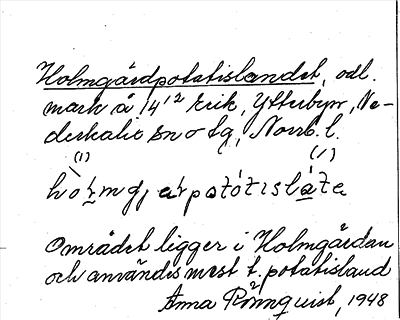 Holmgårdpotatislandet, odl.
mark å 14¹² Erik, Ytterbyn, Ne-
derkalix sn o tg, Norrb. l.
(1) (1)
Området ligger i Holmgårdan
och användes mest t. potatisland
Anna Rönnquist, 1948